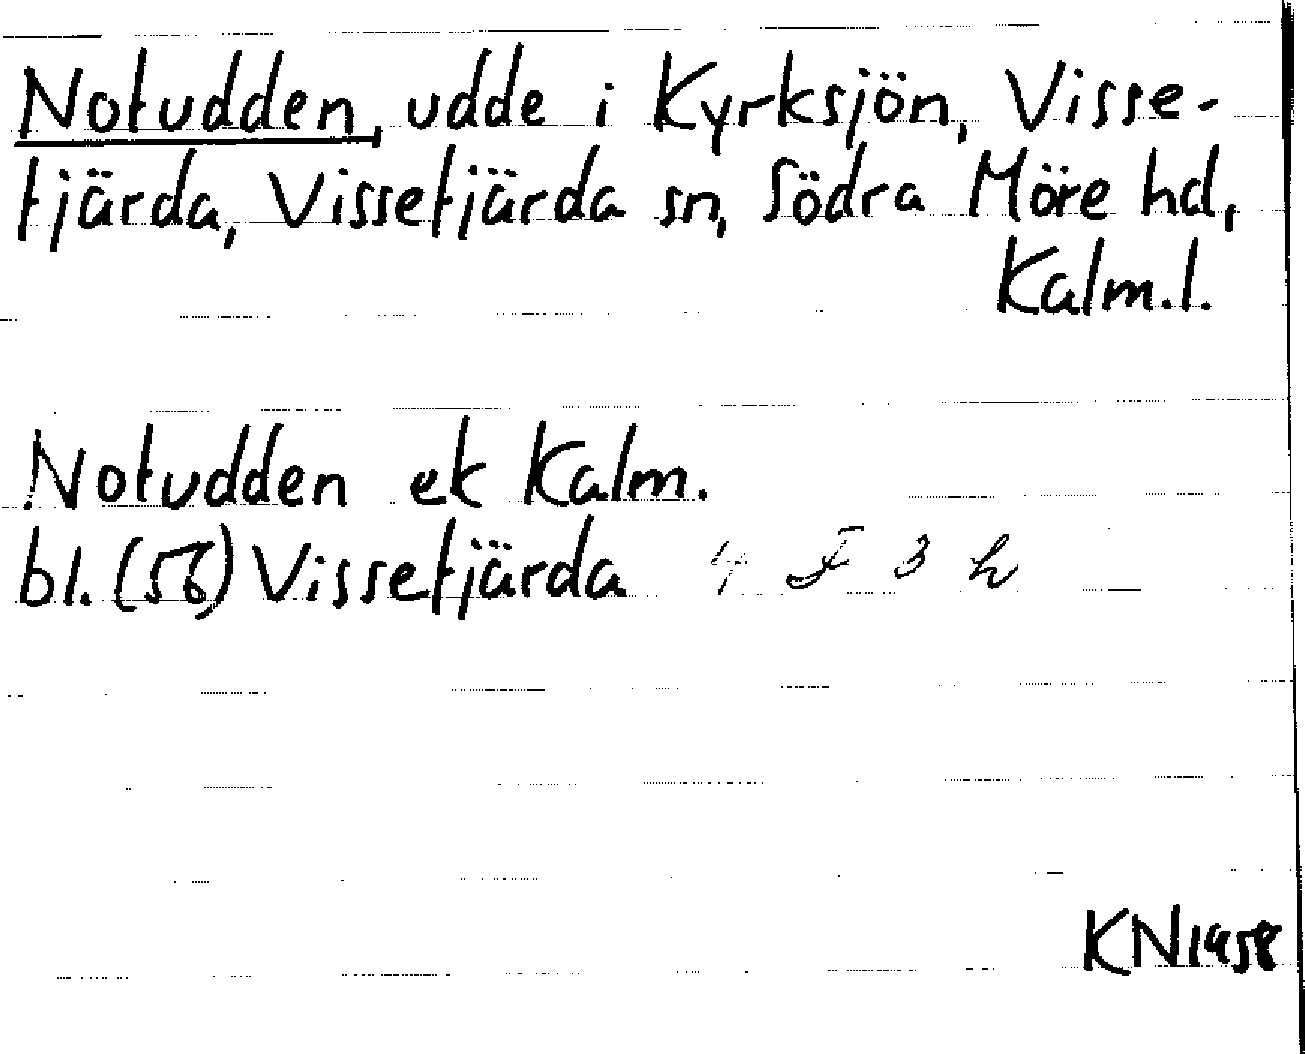 Notudden, udde i Kyrksjön, Visse-
fjärda, Vissefjärda sn, Södra Möre hd,
Kalm.l.
Notudden ek Kalm.
bl. (56) Vissefjärda 4 F 3 h
KN1958